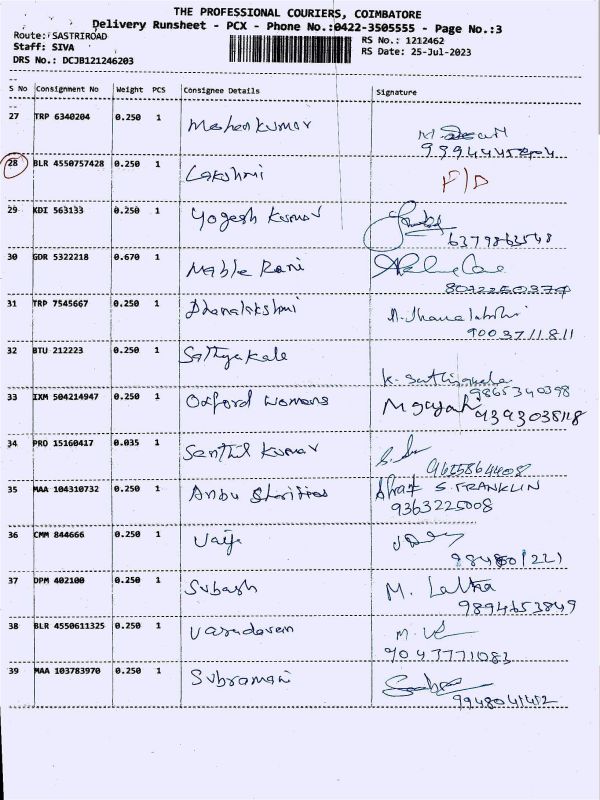 THE PROFESSIONAL COURIERS, COIMBATORE
Delivery Runsheet - PCX - Phone No.:0422-3505555 - Page No.:3
Route: SASTRIROAD RS No.: 1212462
Staff: SIVA RS Date: 25-Jul-2023
DRS No.: DCJB121246203
S No Consignment No Weight PCS Consignee Details Signature
27 TRP 6340204 0.250 1 Maheshkumar
28 BLR 4550757428 0.250 1 Lakshmi
29 KDI 563133 0.250 1 Yogesh Kumar
6379863548
30 GDR 5322218 0.670 1 Mable Rani
31 TRP 7545667 0.250 1 Dhanalakshmi
9003711811
32 BTU 212223 0.250 1 Sathyakala
9865340398
33 IXM 504214947 0.250 1 Oxford Womens
34 PRO 15160417 0.035 1 Senthil Kumar
35 MAA 104310732 0.250 1 Anbu S. FRANKLIN
9363225008
36 CMM 844666 0.250 1
37 DPM 402100 0.250 1 Subash M. Latha
9894653849
38 BLR 4550611325 0.250 1
9043771083
39 MAA 103783970 0.250 1 Subramani